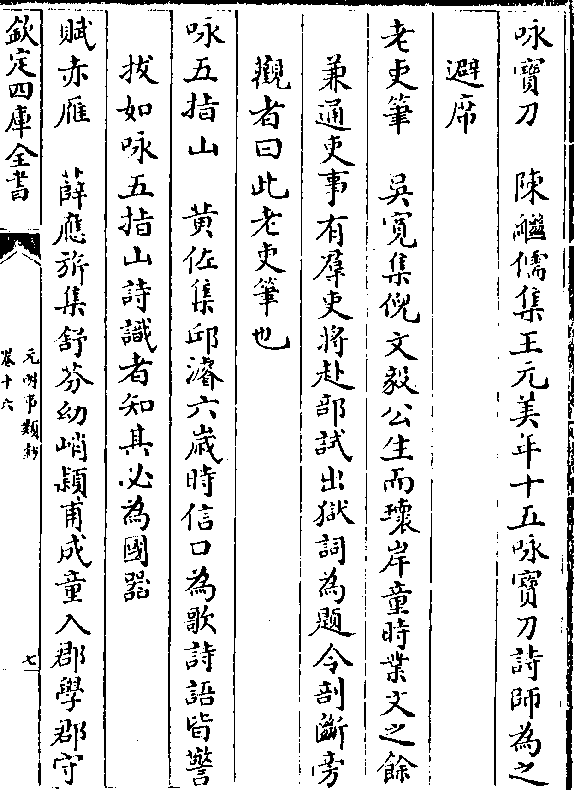 咏寶刀　陳繼儒集王元美年十五咏寶刀詩師為之
避席
老吏筆　吳寬集倪文毅公生而瓌岸童時業文之餘
兼通吏事有羣吏將赴部試出獄詞為題令剖斷旁
觀者曰此老吏筆也
咏五指山　黄佐集邱濬六歲時信口為歌詩語皆警
拔如咏五指山詩識者知其必為國器
賦赤雁　薛應旂集舒芬幼峭穎甫成童入郡學郡守
欽定四庫全書
元明事類鈔
卷十六
七